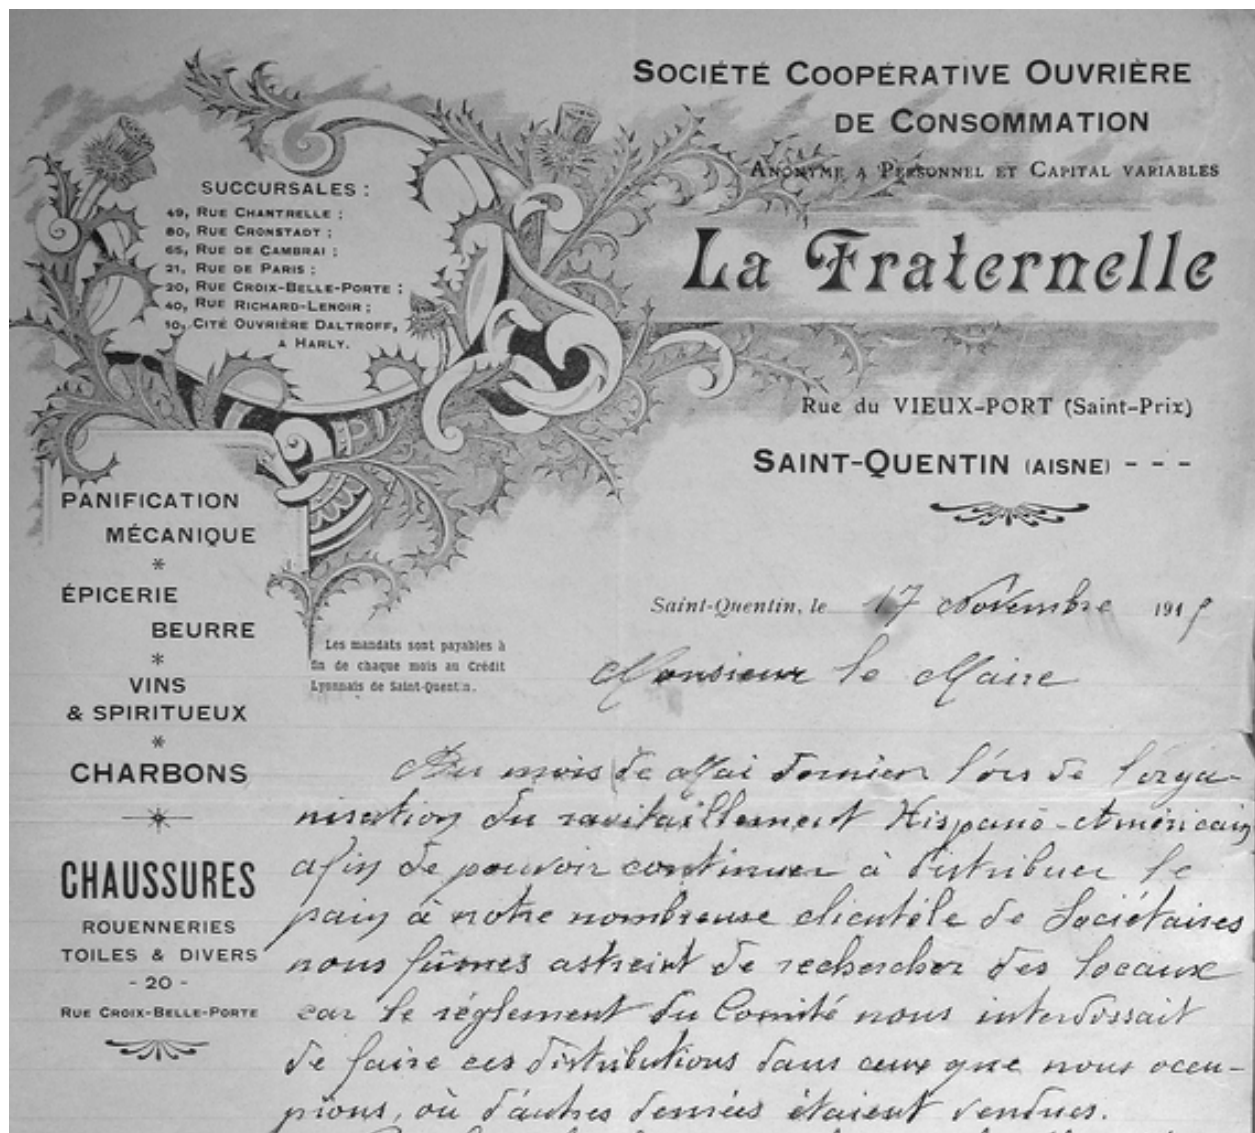 SOCIÉTÉ COOPÉRATIVE OUVRIÈRE
DE CONSOMMATION
ANONYME A PERSONNEL ET CAPITAL VARIABLES
La Fraternelle
Rue du VIEUX-PORT (Saint-Prix)
SAINT-QUENTIN (AISNE) - - -
SUCCURSALES :
49, RUE CHANTRELLE ;
80, RUE CRONSTADT ;
65, RUE DE CAMBRAI ;
21, RUE DE PARIS ;
20, RUE CROIX-BELLE-PORTE ;
40, RUE RICHARD-LENOIR ;
10, CITÉ OUVRIÈRE DALTROFF,
A HARLY.
PANIFICATION
MÉCANIQUE
*
ÉPICERIE
BEURRE
*
VINS
& SPIRITUEUX
*
CHARBONS
CHAUSSURES
ROUENNERIES
TOILES & DIVERS
- 20 -
RUE CROIX-BELLE-PORTE
Les mandats sont payables à
fin de chaque mois au Crédit
Lyonnais de Saint-Quentin.
Saint-Quentin, le 17 Novembre 191
Monsieur le Maire
Au mois de Mai dernier lórs de lórga-
nisation du ravitaillement Hispano-Américain
afin de pouvoir continuer à distribuer le
pain à notre nombreuse clientèle de Sociétaires
nous fûmes astreint de rechercher des locaux
car le réglement du Comité nous interdissait
de faire ces distributions dans ceux que nous occu-
pions, où d'autres denrées étaient vendues.